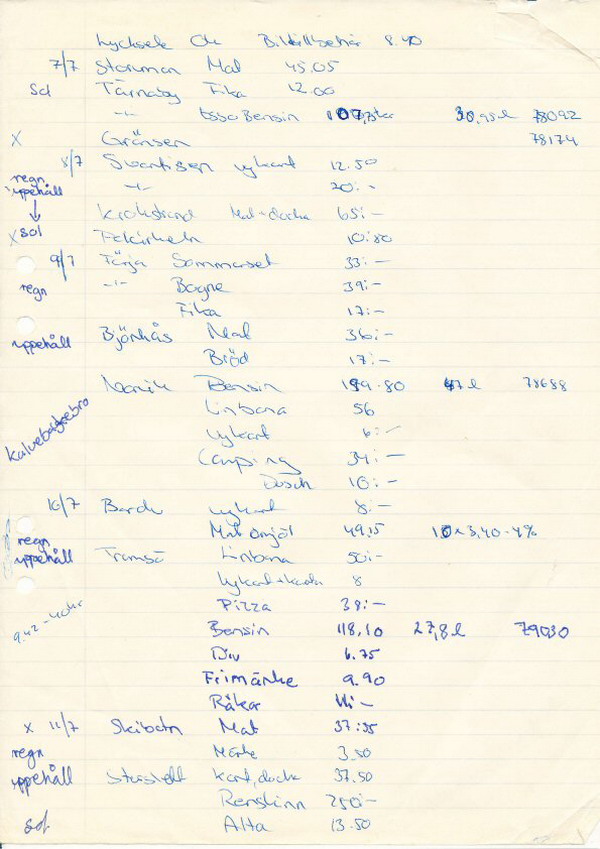 Lycksele Ok 8.40
7/7 Storuman Mat 45.05
Sol Tärnaby Fika 12.00
-"- Esso Bensin 107, kr 30,95 l 78092
x Gränsen 78174
8/7 Svartisen vykort 12.50
regn
uppehåll -"- 20:-
↓ Krokstrand Mat+docka 65:-
x sol Polcirkeln 10:80
9/7 Färja 33:-
regn -"- Bogne 39:-
Fika 17:-
uppehåll Mat 36:-
Bröd 17:-
Narvik Bensin 199.80 47 l
Linbana 56
vykort 6:-
Camping 34:-
Dusch 10:-
10/7 Bardu vykort 8:-
regn Mat 49,15 10x3,40-4%
uppehåll Tromsö Linbana 50:-
vykort 8
Pizza 38:-
Bensin 118,10 27,8 l 79030
Div 6.75
Frimärke 9.90
Räkor
x 11/7 Skibotn Mat
regn Märke 3.50
uppehåll kort, docka 37.50
Renskinn 250:-
sol Alta 13.50